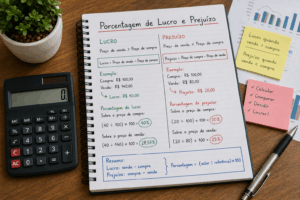 Porcentagem de Lucro e Prejuízo
LUCRO
Preço de venda > Preço de compra
Lucro = Preço de venda - Preço de compra
Exemplo:
Compra: R$ 100,00
Venda: R$ 140,00
Lucro: R$ 40,00
Porcentagem de lucro
Sobre o preço de compra:
(40 ÷ 100) × 100 = 40%
Sobre o preço de venda:
(40 ÷ 140) × 100 = 28,57%
PREJUÍZO
Preço de venda < Preço de compra
Prejuízo = Preço de compra - Preço de venda
Exemplo:
Compra: R$ 100,00
Venda: R$ 80,00
Prejuízo: R$ 20,00
Porcentagem de prejuízo
Sobre o preço de compra:
(20 ÷ 100) × 100 = 20%
Sobre o preço de venda:
(20 ÷ 80) × 100 = 25%
Resumo:
Lucro: venda > compra
Prejuízo: compra > venda
Lucro quando
venda > compra
Prejuízo quando
venda < compra
✓ Calcular
✓ Comparar
✓ Decidir
✓ Lucrar!